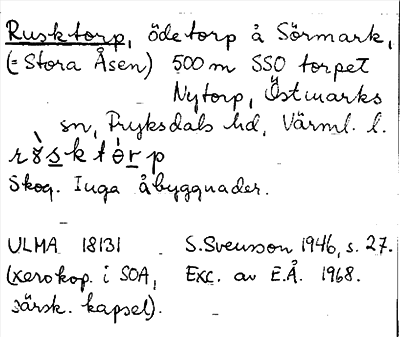 Rusktorp, ödetorp å Sörmark,
(= Stora Åsen) 500 m SSO torpet
Nytorp, Östmarks
sn, Fryksdals hd, Värml. l.
rȍsktòrp
Skog. Inga åbyggnader.
ULMA 18131 S.Svensson 1946, s. 27.
(xerokop. i SOA, Exc. av E.Å. 1968.
särsk. kapsel).